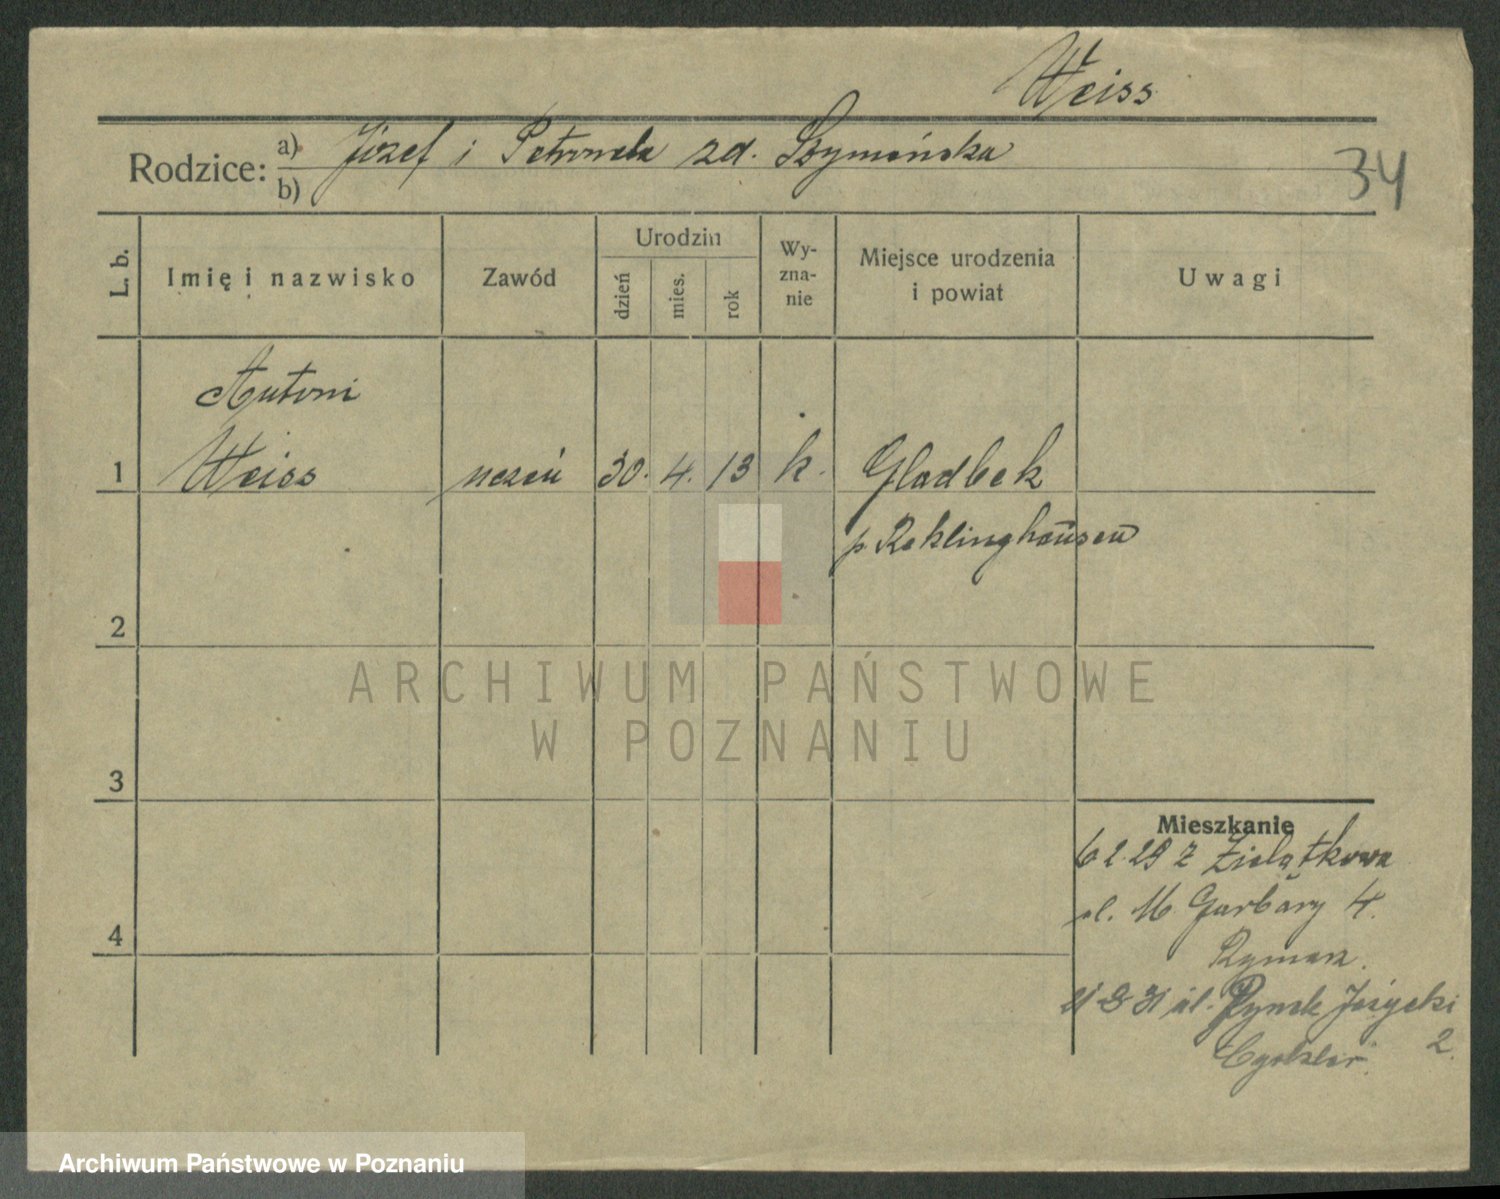 Weiss
Rodzice: a) Józef i Petronela zd. Szymańska
b)
34
L. b.
Imię i nazwisko
Zawód
Urodzin
dzień
mies.
rok
Wy-
zna-
nie
Miejsce urodzenia
i powiat
Uwagi
Antoni
1 Weiss uczeń 30. 4. 13 k. Gladbek
p Reklinghausen
2
3
4
Mieszkanie
6 2.29 z Zielątkowa
ul. M Garbary 4.
Rymarz.
31 ul. Rynek Jeżycki
2.
ARCHIWUM PAŃSTWOWE
W POZNANIU
Archiwum Państwowe w Poznaniu